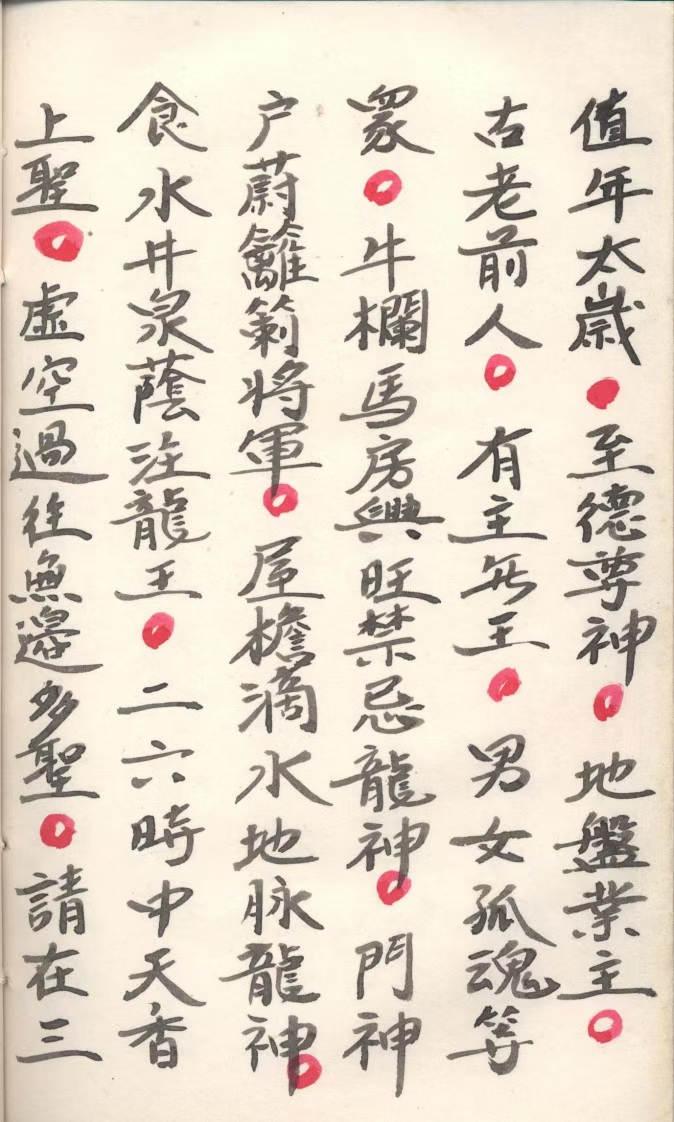 值年太歲。至德尊神。地盤業主。
古老前人。有主無王。男女孤魂等
眾。牛欄馬房興旺禁忌龍神。門神
户蔚籬箣將軍。屋檐滴水地脉龍神。
食水井泉蔭注龍王。二六時中天香
上聖。虛空過往無邊多聖。請在三